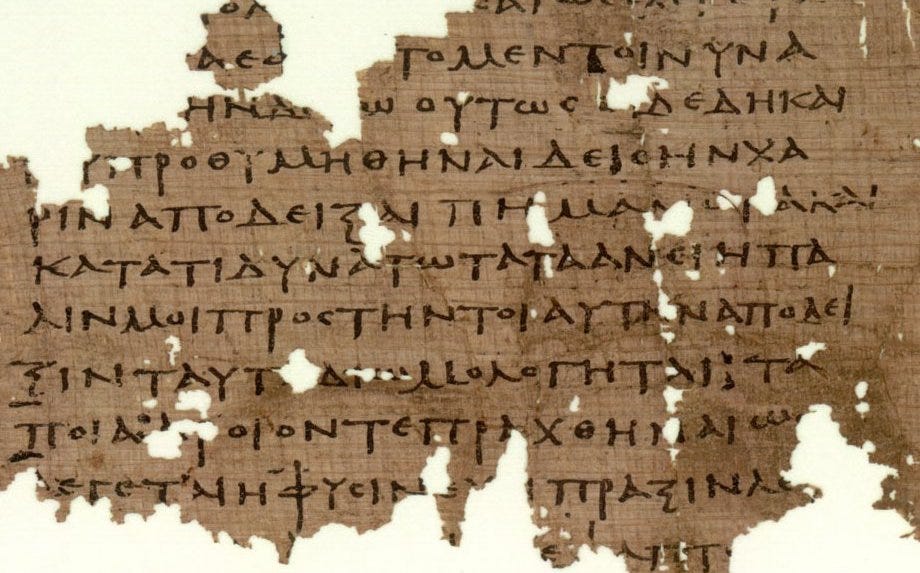 ΤΟΜΕΝΤΟΙΝΥΝΑ
ΗΝΔ Ω ΟΥΤΩΣ ΔΕΔΗΚΑΙ
ΠΡΟΘΥΜΗΘΗΝΑΙΔΕΙΣΗΝΧΑ
ΡΙΝΑΠΟΔΕΙΞΑΙΠΗΜΑΛ ΚΑΙ
ΚΑΤΑΤΙΔΥΝΑΤΩΤΑΤΑΑΝΕΙΗΠΑ
ΛΙΝΜΟΙΠΡΟΣΤΗΝΤΟΙΑΥΤΗΝΑΠΟΔΕΙ
ΞΙΝΤΑΥΤ ΔΙΟΜΟΛΟΓΗΤΑΙ:ΤΑ
ΠΟΙΑ ΟΙΟΝΤΕΠΡΑΧΘΗΝΑΙΩΣ
ΛΕΓΕΤΑΙΗΦΥΣΙΝΕΧΕΙΠΡΑΞΙΝΛΕ